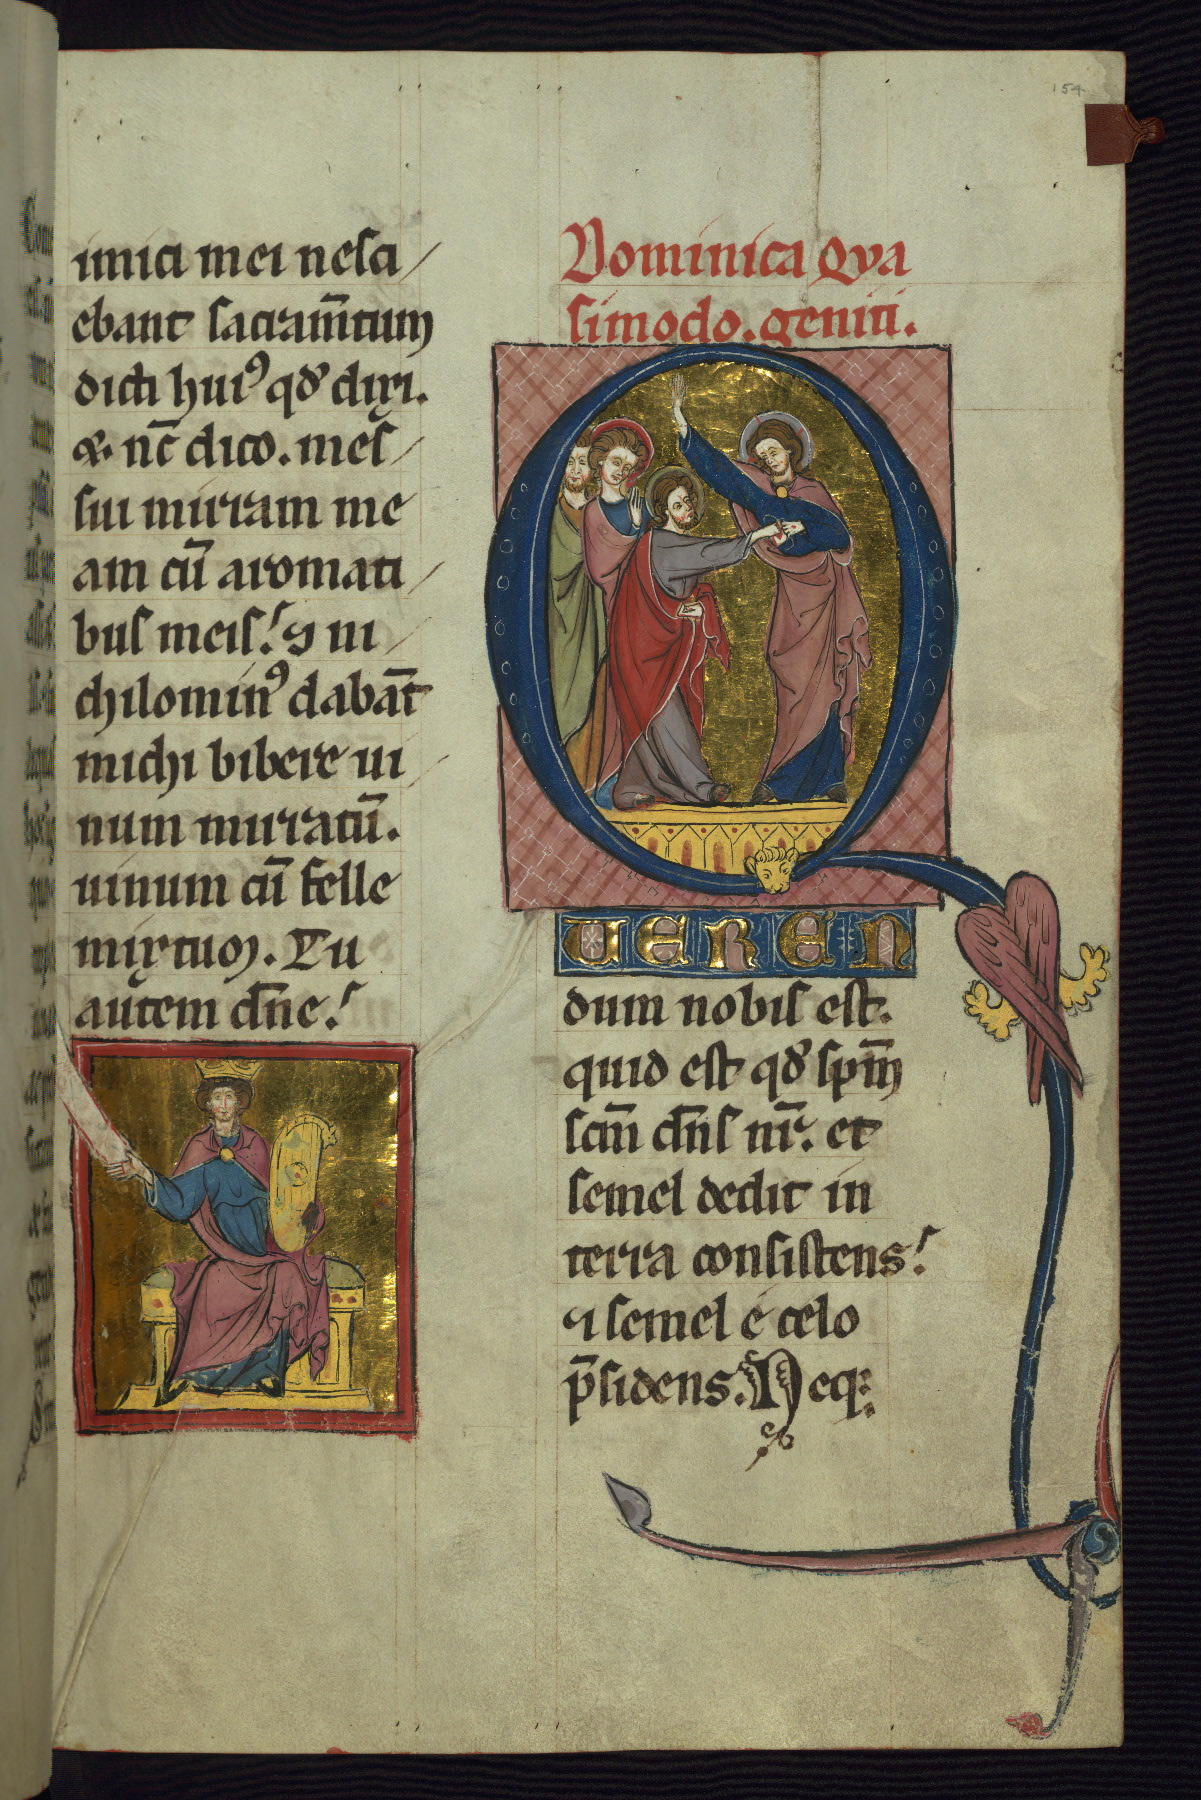 154
imici mei nesci
ebant sacram̄tum
dicti huiꝰ qd̓ dixi.
⁊ nc̄ dico. mes
sui mirram me
am cū aromati
bus meis! ⁊ ni
chilominꝰ dabāt
michi bibere ui
num mirratū.
uinum cū felle
mixtuꝫ. Tu
autem dn̄e!
Dominica Qva
simodo. geniti.
Q
UEREN
dum nobis est.
quid est qd̓ sp̄m
scm̄ dn̄s nr̄. et
semel dedit in
terra consistens!
⁊ semel e celo
p̄sidens. Neqꝫ